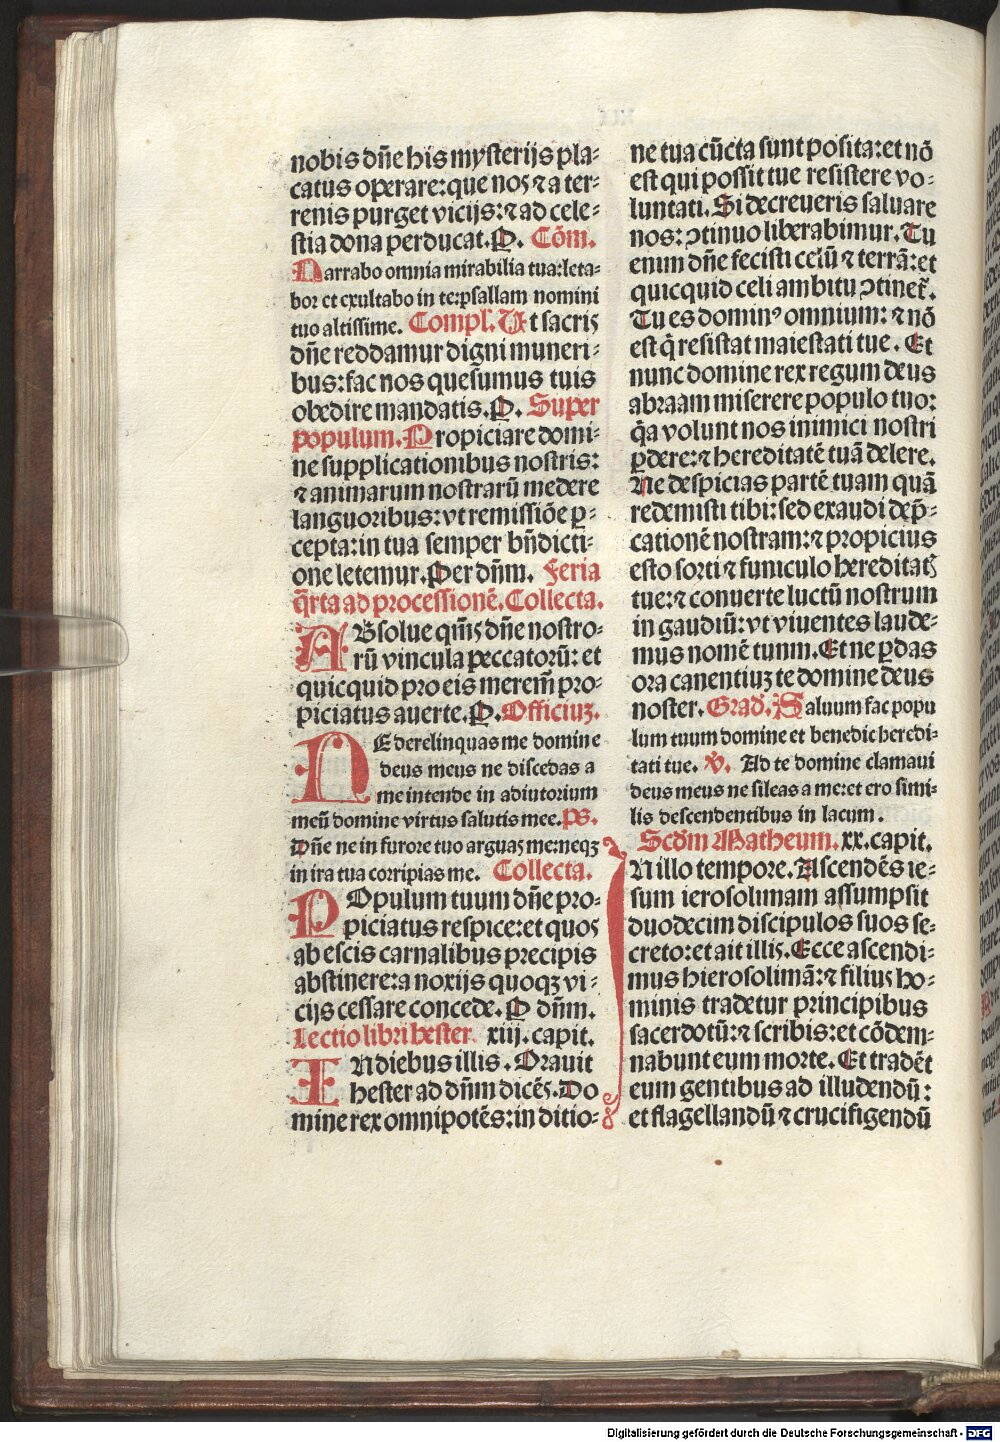 nobis dñe his mysterijs pla⸗
catus operare:que nos ⁊ a ter⸗
renis purget vicijs:⁊ ad cele⸗
stia dona perducat. P. Cõm.
Narrabo omnia mirabilia tua:leta⸗
bor et exultabo in te:psallam nomini
tuo altissime. Compl. Ut sacris
dñe reddamur digni muneri⸗
bus:fac nos quesumus tuis
obedire mandatis. P. Super
populum. Propiciare domi⸗
ne supplicationibus nostris:
⁊ animarum nostrarũ medere
languoribus:vt remissiõe ꝑ⸗
cepta:in tua semper bñdicti⸗
one letemur. Per dñm. Feria
q̃rta ad processionẽ. Collecta.
ABsolue q̃s dñe nostro⸗
rũ vincula peccatorũ: et
quicquid pro eis meremr̃ pro⸗
piciatus auerte. P. Officiuꝫ.
NE derelinquas me domine
deus meus ne discedas a
me intende in adiutorium
meũ domine virtus salutis mee. ps.
Dñe ne in furore tuo arguas me:neqꝫ
in ira tua corripias me. Collecta.
POpulum tuum dñe pro⸗
piciatus respice:et quos
ab escis carnalibus precipis
abstinere:a noxijs quoqꝫ vi⸗
cijs cessare concede. P dñm.
Lectio libri hester. xiij. capit.
IN diebus illis. Orauit
hester ad dñm dicẽs. Do
mine rex omnipotẽs:in ditio⸗
ne tua cũcta sunt posita:et nõ
est qui possit tue resistere vo⸗
luntati. Si decreueris saluare
nos:ↄtinuo liberabimur. Tu
enim dñe fecisti celũ ⁊ terrã:et
quicquid celi ambitu ↄtinet̃.
Tu es dominꝰ omnium: ⁊ nõ
est q̃ resistat maiestati tue. Et
nunc domine rex regum deus
abraam miserere populo tuo:
q̃a volunt nos inimici nostri
ꝑdere:⁊ hereditatẽ tuã delere.
Ne despicias partẽ tuam quã
redemisti tibi:sed exaudi dep̃⸗
cationẽ nostram:⁊ propicius
esto sorti ⁊ funiculo hereditatꝭ
tue:⁊ conuerte luctũ nostrum
in gaudiũ:vt viuentes laude⸗
mus nomẽ tuum. Et ne ꝑdas
ora canentiuꝫ te domine deus
noster. Grad̃. Saluum fac popu
lum tuum domine et benedic heredi⸗
tati tue. V̉. Ad te domine clamaui
deus meus ne sileas a me:et ero simi⸗
lis descendentibus in lacum.
Scdm̃ Matheum. xx. capit.
IN illo tempore. Ascendẽs ie⸗
sum ierosolimam assumpsit
duodecim discipulos suos se⸗
creto:et ait illis. Ecce ascendi⸗
mus hierosolimã:⁊ filius ho⸗
minis tradetur principibus
sacerdotũ:⁊ scribis:et cõdem⸗
nabunt eum morte. Et tradẽt
eum gentibus ad illudendũ:
et flagellandũ ⁊ crucifigendũ
Digitalisierung gefördert durch die Deutsche Forschungsgemeinschaft - DFG